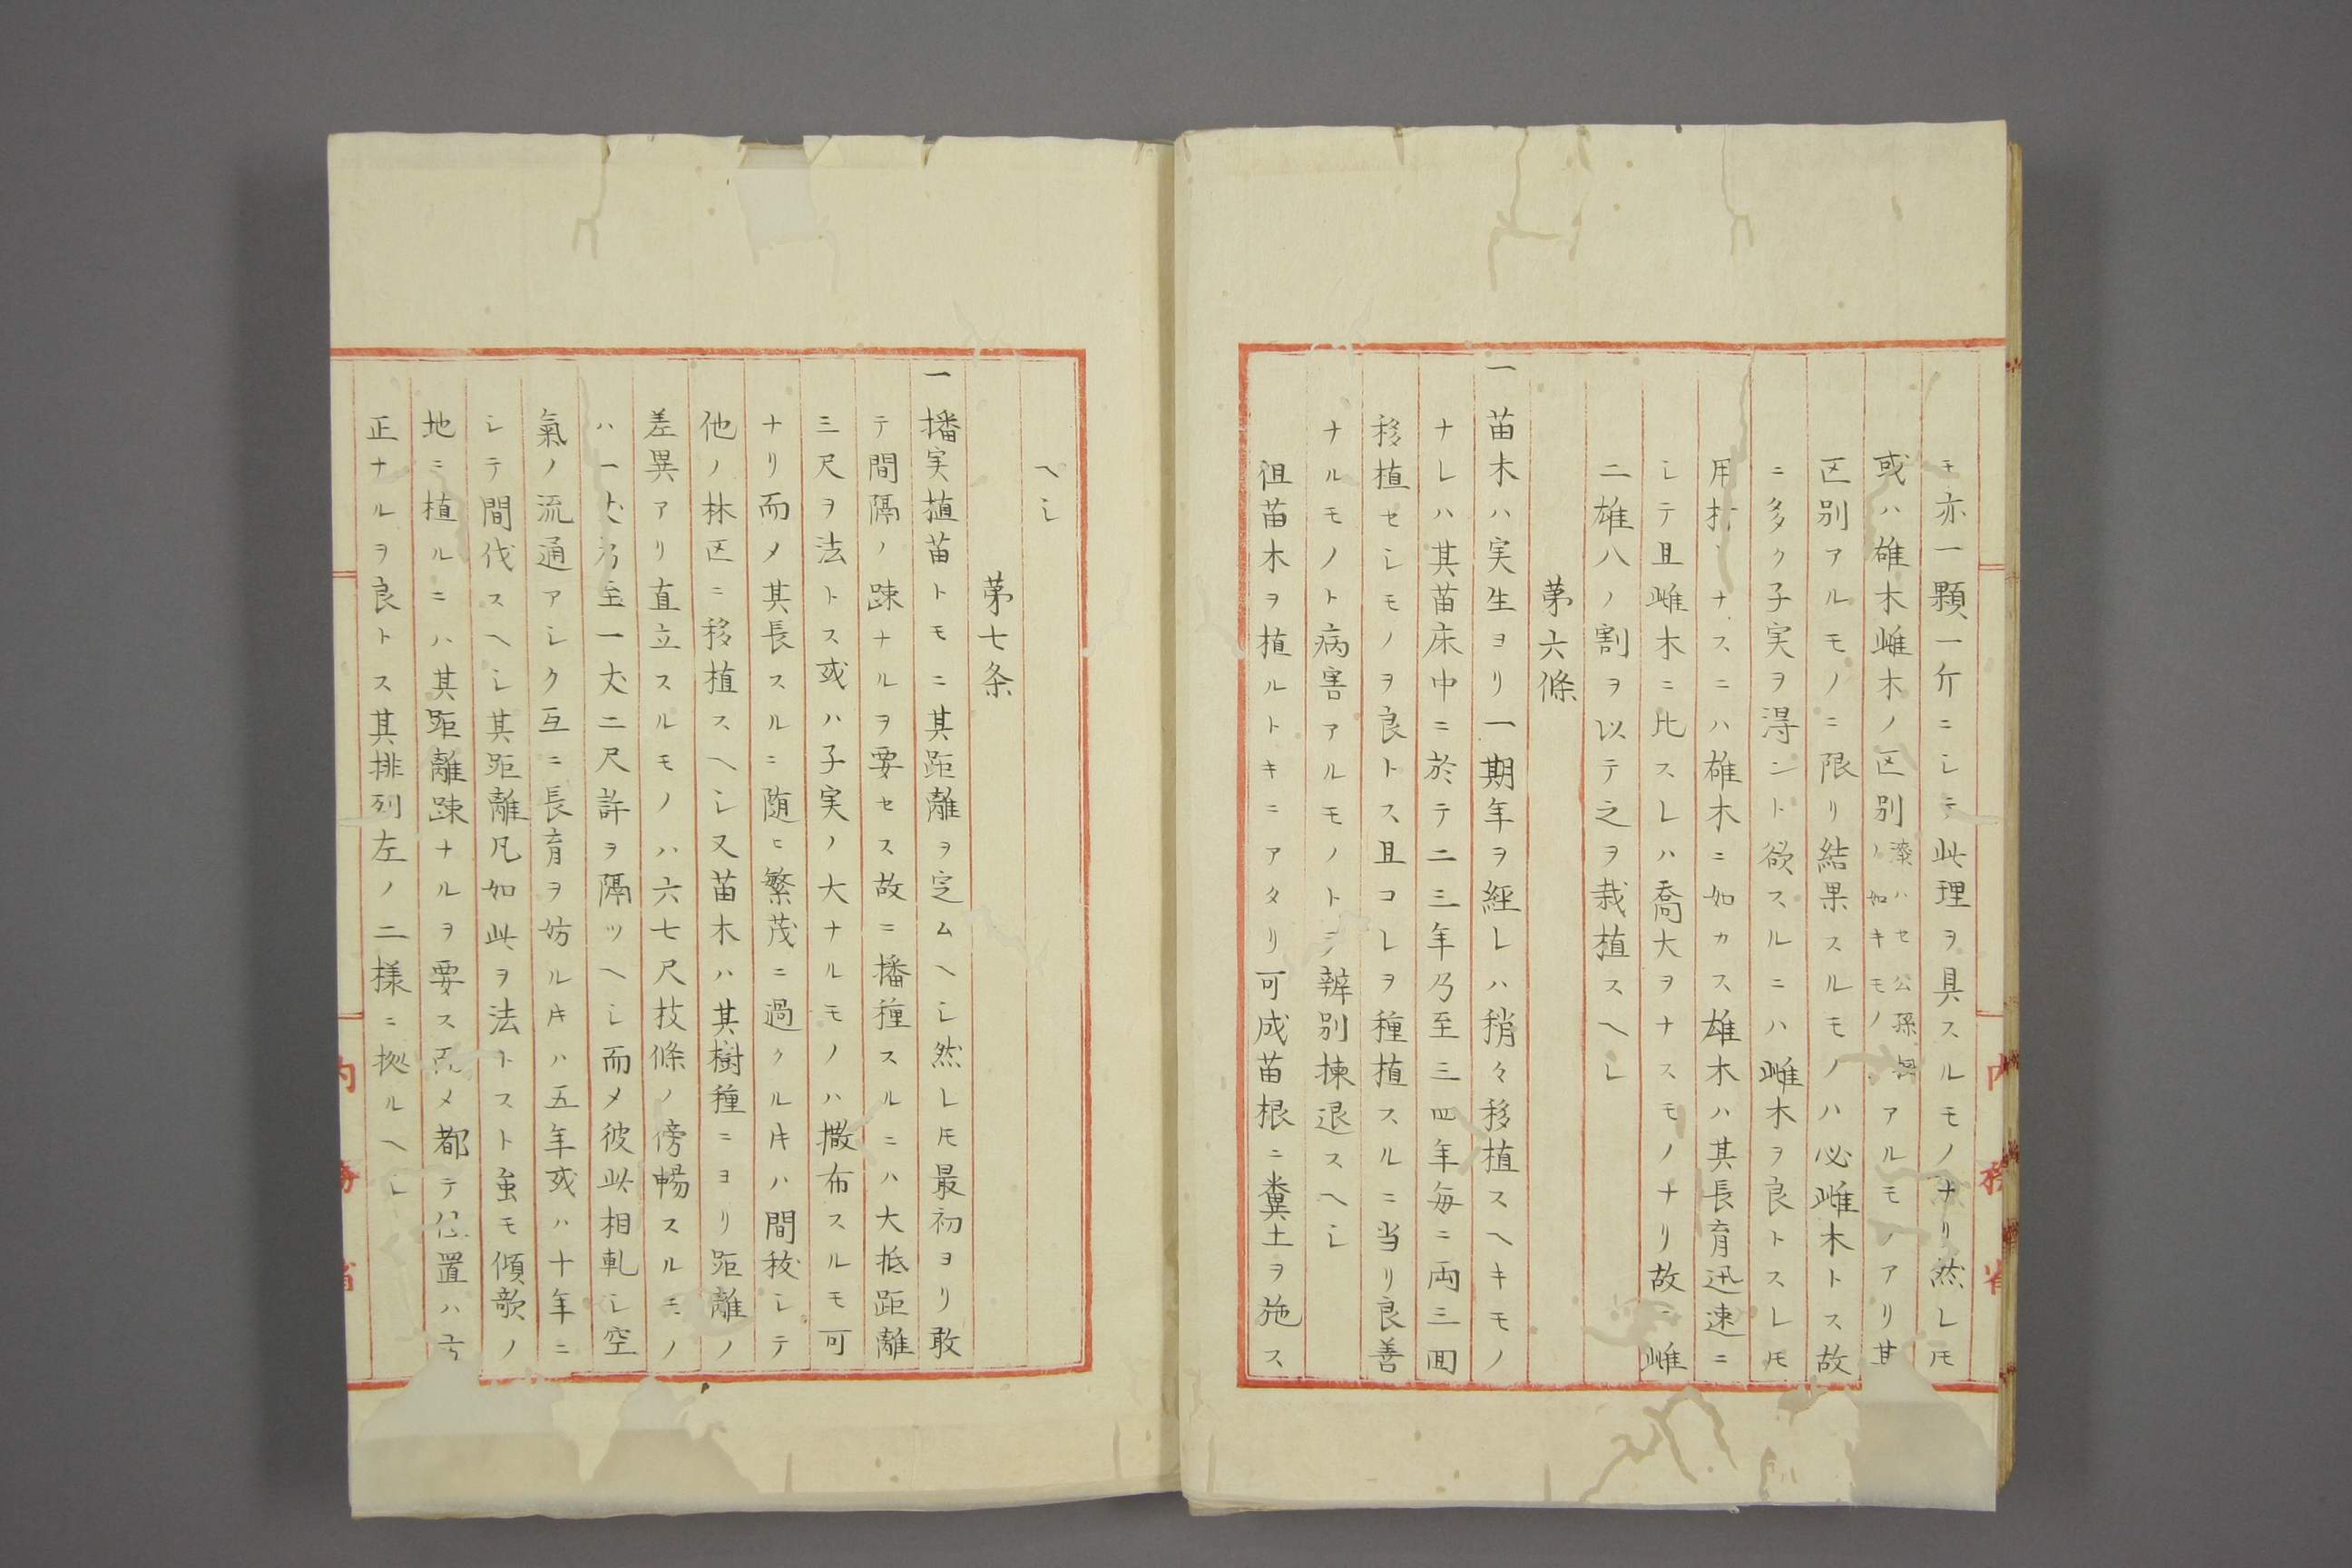 モ亦一顆一斤ニシテ此理ヲ具スルモノナリ然レ𪜈
或ハ雄木雌木ノ区別漆ハセ公孫
ノ如キモノアルモノアリ其
区別アルモノニ限リ結果スルモノハ必雌木トス故
ニ多ク子実ヲ得ント欲スルニハ雌木ヲ良トスレ𪜈
用材ナスニハ雄木ニ如カス雄木ハ其長育迅速ニ
シテ且雌木ニ比スレハ喬大ヲナスモノナリ故ニ雌
二雄八ノ割ヲ以テ之ヲ栽植スヘシ
苐六條
一苗木ハ実生ヨリ一期年ヲ経レハ稍々移植スヘキモノ
ナレハ其苗床中ニ於テ二三年乃至三四年毎ニ両三回
移植セシモノヲ良トス且コレヲ種植スルニ当リ良善
ナルモノト病害アルモノトヲ辨別揀退スヘシ
但苗木ヲ植ルトキニアタリ可成苗根ニ糞土ヲ施ス
ヘシ
苐七条
一播実植苗トモニ其距離ヲ定ムヘシ然レ𪜈最初ヨリ敢
テ間隔ノ踈ナルヲ要セス故ニ播種スルニハ大抵距離
三尺ヲ法トス或ハ子実ノ大ナルモノハ撒布スルモ可
ナリ而メ其長スルニ随ヒ繁茂ニ過クル𪜈ハ間抜シテ
他ノ林区ニ移植スヘシ又苗木ハ其樹種ニヨリ距離ノ
差異アリ直立スルモノハ六七尺枝條ノ傍暢スルモノ
ハ一丈乃至一丈二尺許ヲ隔ツヘシ而メ彼此相軋シ空
氣ノ流通アシク互ニ長育ヲ妨ル𪜈ハ五年或ハ十年ニ
シテ間伐スヘシ其距離凡如此ヲ法トスト虽モ傾欹ノ
地ニ植ルニハ其距離踈ナルヲ要ス而メ都テ位置ハ方
正ナルヲ良トス其排列左ノ二様ニ拠ルヘシ
内務省